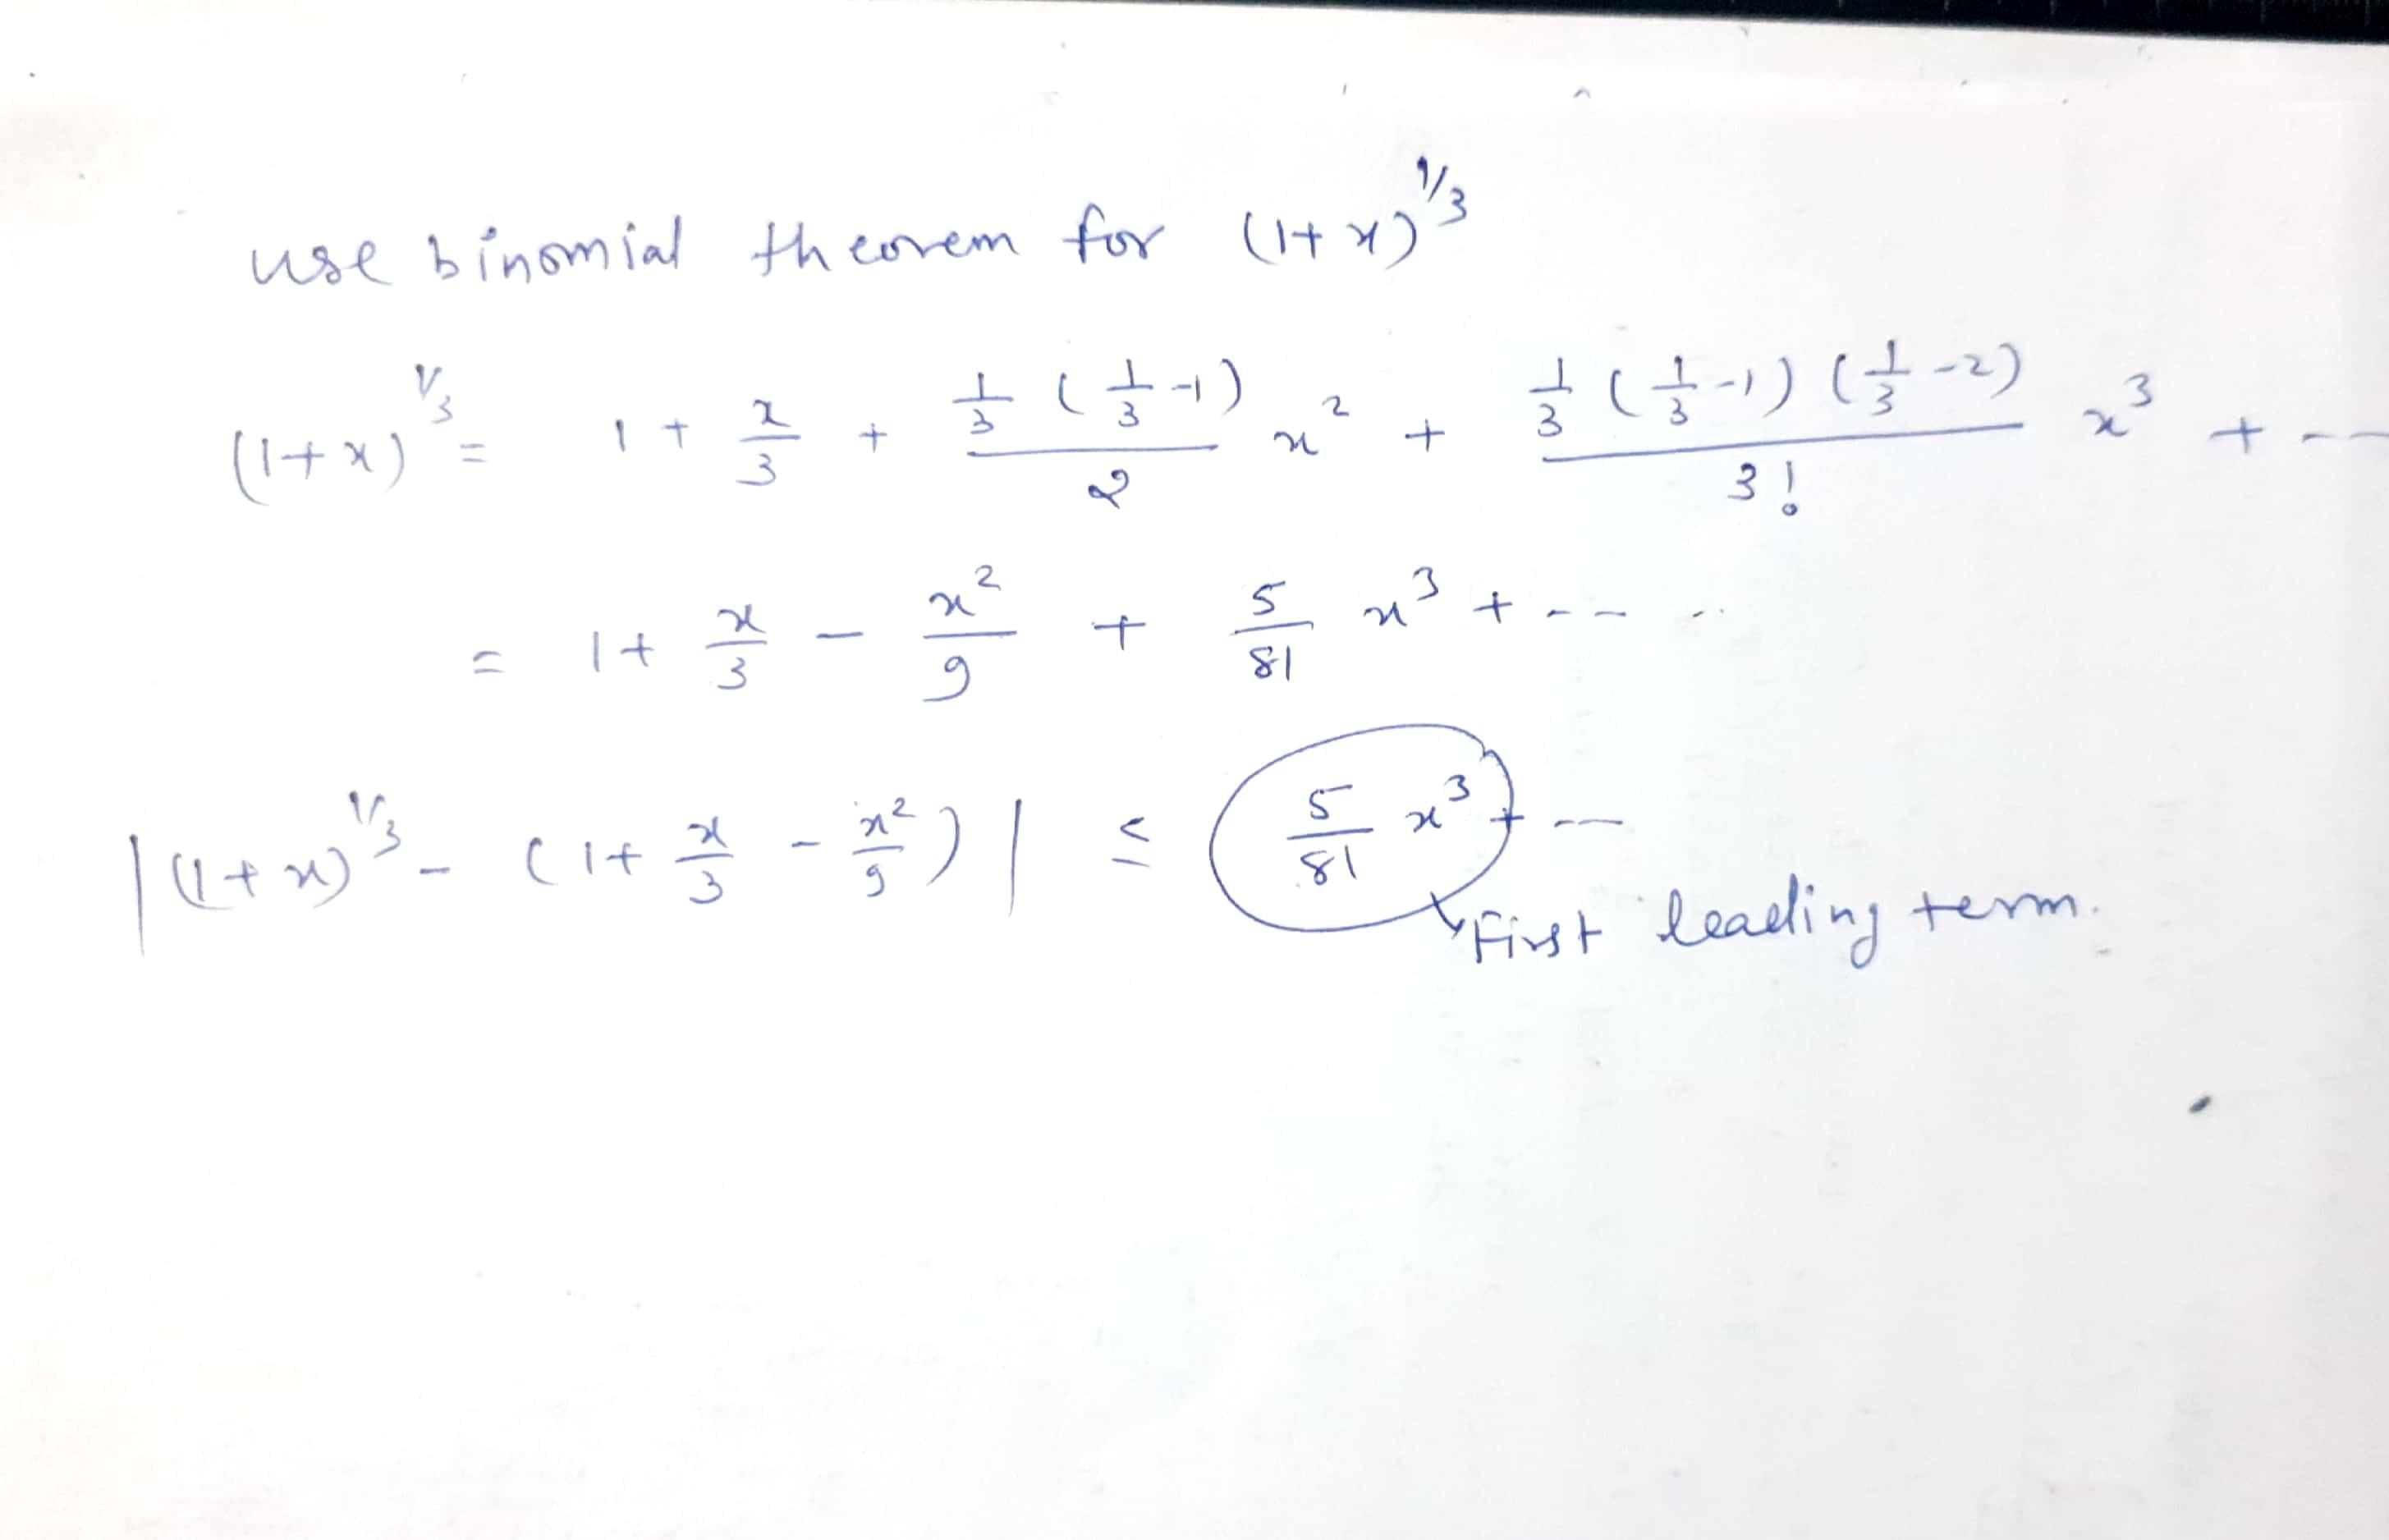 use binomial theorem for (1+x)^{1/3}
(1+x)^{1/3} = 1 + \frac{x}{3} + \frac{\frac{1}{3}(\frac{1}{3}-1)}{2} x^2 + \frac{\frac{1}{3}(\frac{1}{3}-1)(\frac{1}{3}-2)}{3!} x^3 + --
= 1 + \frac{x}{3} - \frac{x^2}{9} + \frac{5}{81} x^3 + -- --
|(1+x)^{1/3} - (1 + \frac{x}{3} - \frac{x^2}{9})| ≤ \frac{5}{81} x^3 + --
First leading term.